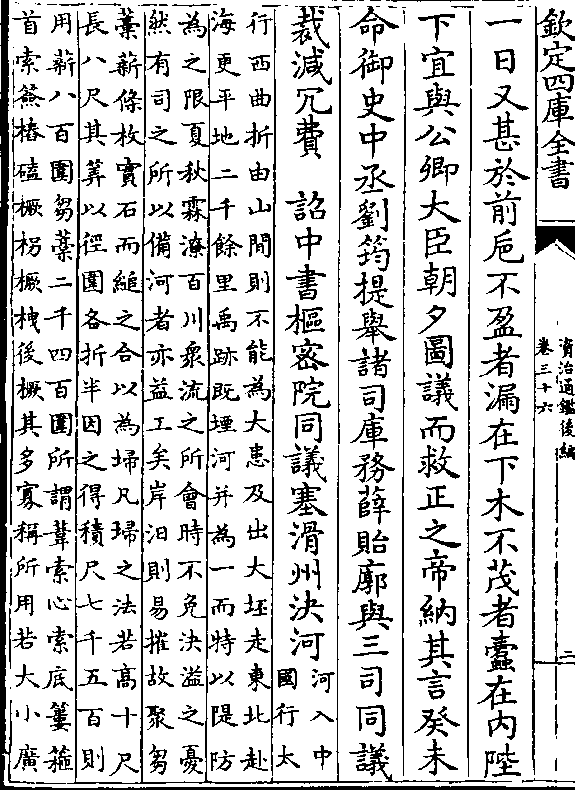 欽定四庫全書
資治通鑑後編
卷三十六
二
一日又甚於前巵不盈者漏在下木不茂者蠹在內陛
下宜與公卿大臣朝夕圖議而救正之帝納其言癸未
命御史中丞劉筠提舉諸司庫務薛貽廓與三司同議
裁減冗費　詔中書樞密院同議塞滑州決河
河入中
國行太
行西曲折由山間則不能為大患及出大坯走東北赴
海更平地二千餘里禹跡既堙河并為一而特以隄防
為之限夏秋霖潦百川衆流之所會時不免決溢之憂
然有司之所以備河者亦益工矣岸汨則易摧故聚芻
藁薪條枚實石而縋之合以為埽凡埽之法若高十尺
長八尺其筭以徑圍各折半因之得積尺七千五百則
用薪八百圍芻藁二千四百圍所謂葦索心索底簍箍
首索籤樁磕橛拐橛拽後橛其多寡稱所用若大小廣